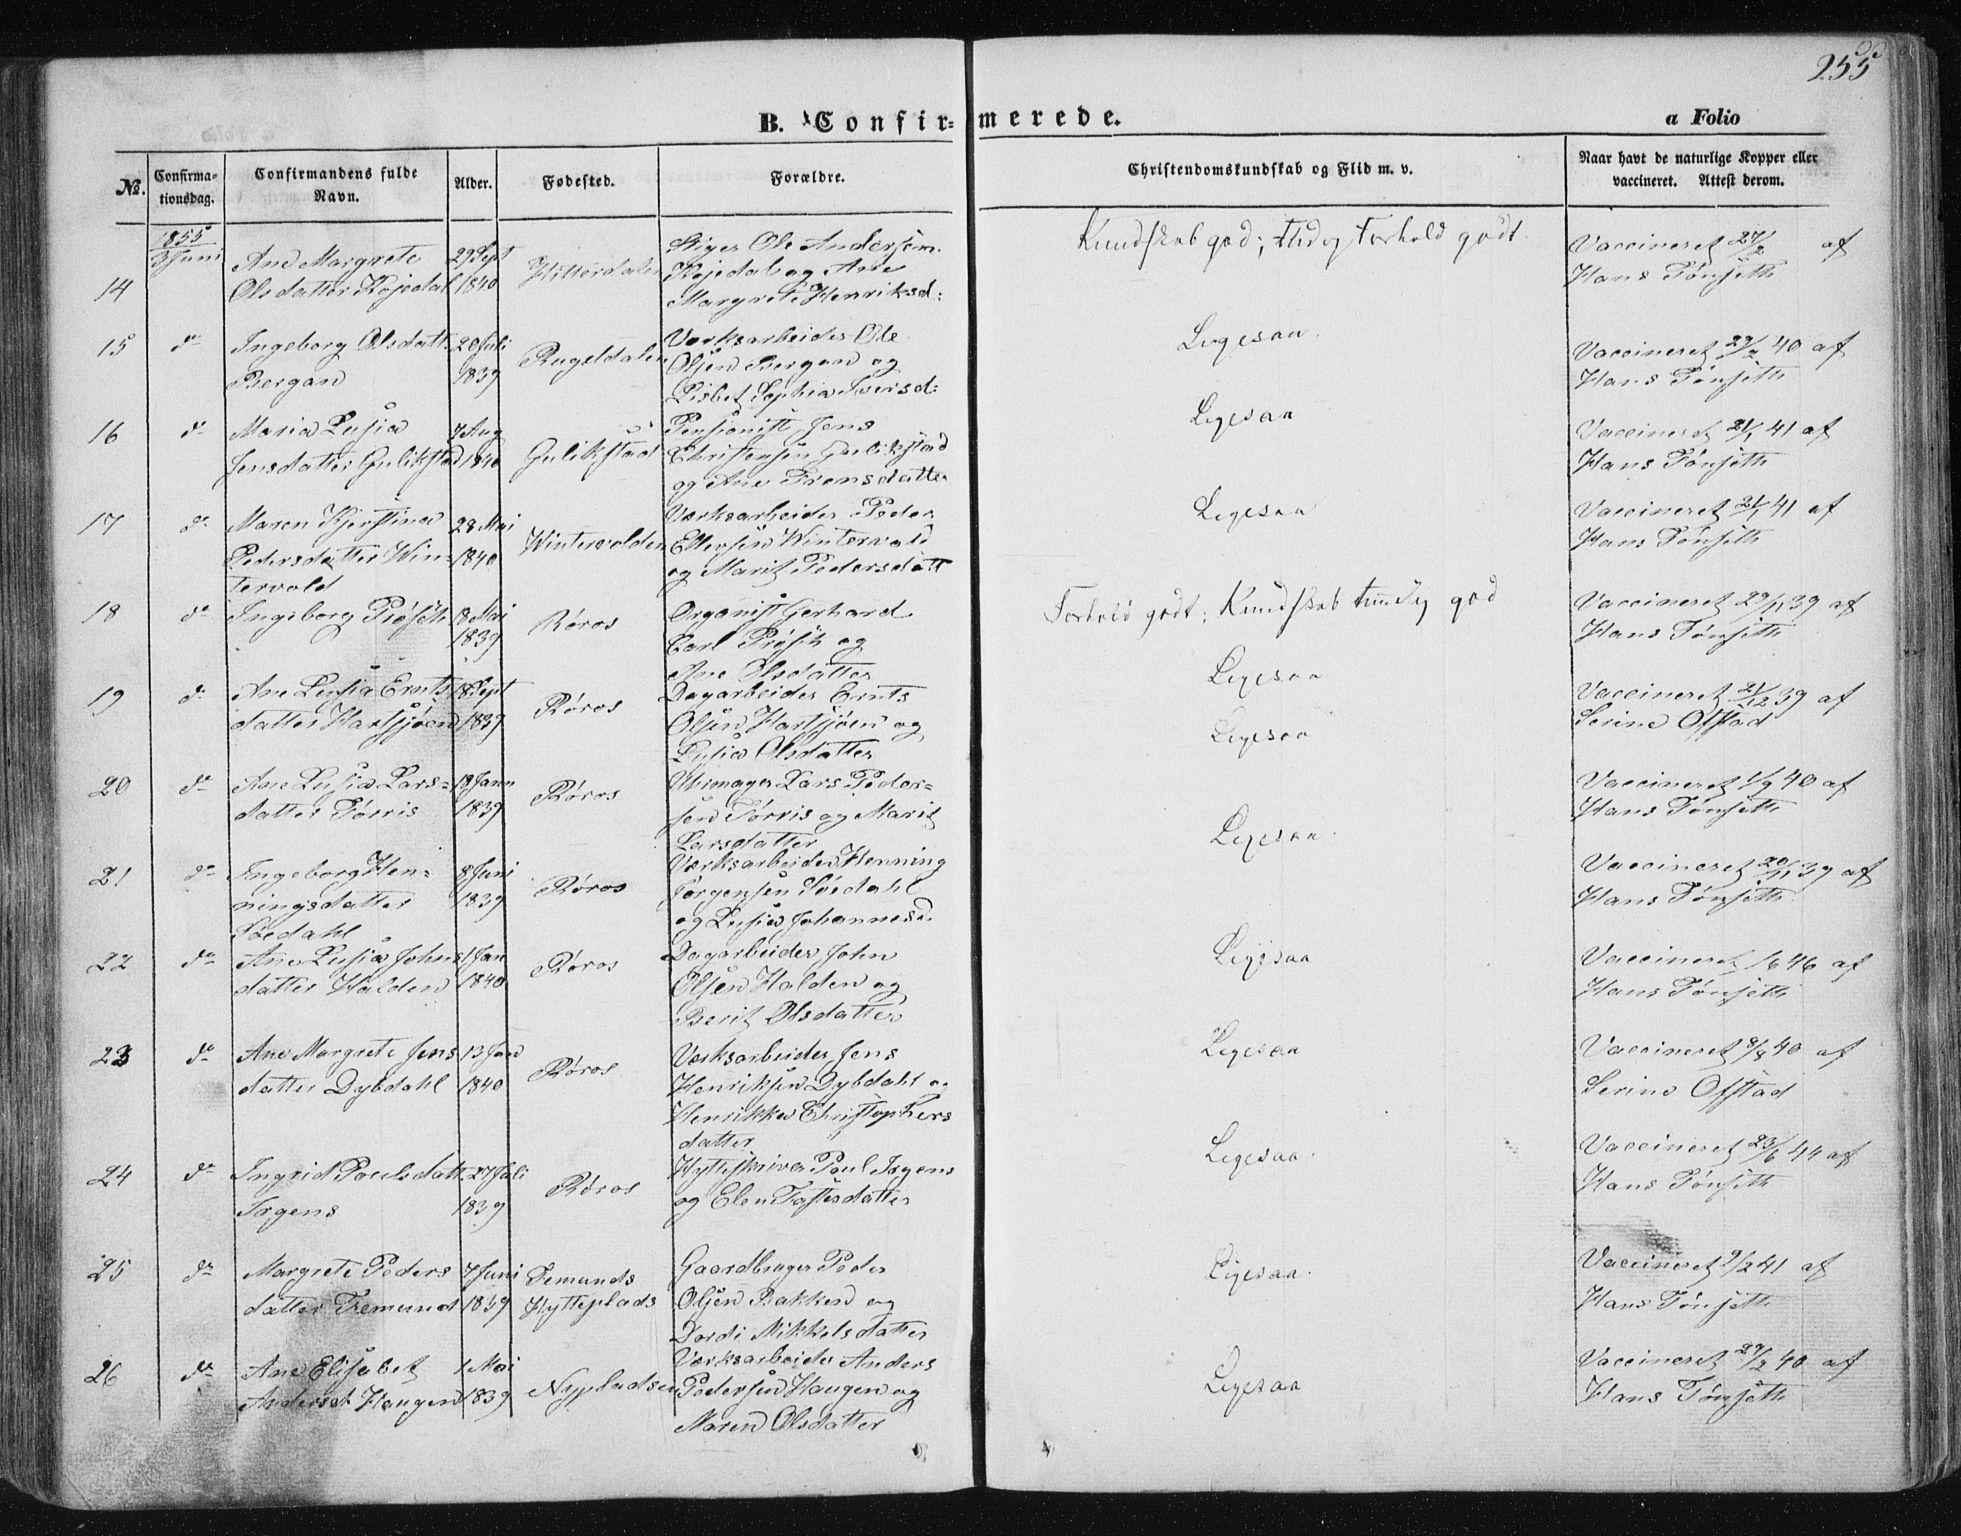 255
B. Confirmerede.
a Folio
No.
Confirmationsdag.
Confirmandens fulde Navn.
Alder.
Fødested.
Forældre.
Christendomskundskab og Flid m. v.
Naar havt de naturlige Kopper eller vaccineret. Attest derom.
1855
14 3 Juni
Ane Margrete
Olsdatter Kojedal
29 Sept
1840
Hitterdalen
Stiger Ole Andersen
Kojedal og Ane
Margrete Henriksd:
Kundskab god; Flid og Forhold godt.
Vaccineret 27/2 af
Hans Tønseth
15 do
Ingeborg Olsdatt
Bergan
20 Juli
1839
Rugeldalen
Værksarbeider Ole
Olsen Bergan og
Lisbet Sophia Iversd:
Ligesaa.
Vaccineret 29/2 40 af
Hans Tønseth
16 do
Maria Lusia
Jensdatter Gulikstad
7 Aug
1840
Gulikstad
Pensionist Jens
Christensen Gulikstad
og Ane Fremsdatter
Ligesaa
Vaccineret 21/1 41 af
Hans Tønseth
17 do
Maren Kjerstina
Pedersdatter Win-
tervold
28 Mai
1840
Wintervolden
Værksarbeider Peder
Ellevsen Wintervold
og Marit Pedersdatt
Ligesaa
Vaccineret 21/1 41 af
Hans Tønseth
18 do
Ingeborg Prøsch
18 Mai
1839
Røros
Organist Gerhard
Carl Prøsch og
Ane Olsdatter
Forhold godt; Kundskab temlig god
Vaccineret 29/11 39 af
Hans Tønseth
19 do
Ane Lusia Ernts
datter Hartsjøen
18 Sept
1839
Røros
Dagarbeider Ernts
Olsen Hartsjøen og
Lusia Olsdatter
Ligesaa
Vaccineret 21/12 39 af
Serine Ofstad
20 do
Ane Lusia Lars-
datter Törris
18 Janu
1839
Røros
Uhrmager Lars Peder-
sen Törris og Marit
Larsdatter
Ligesaa
Vaccineret 1/9 40 af
Hans Tønseth
21 do
Ingeborg Hen-
ningsdatter
Söedahl
8 Juni
1839
Røros
Værksarbeider Henning
Jörgensen Söedahl
og Lusia Johannesd.
Ligesaa.
Vaccineret 20/11 39 af
Hans Tønseth
22 do
Ane Lusia Johns
datter Halden
1 Jan
1840
Røros
Dagarbeider John
Olsen Halden og
Berit Olsdatter
Ligesaa
Vaccineret 46 af
Hans Tønseth
23 do
Ane Margrete Jens
datter Dybdahl
13 Jan
1840
Røros
Værksarbeider Jens
Henriksen Dybdahl og
Henrikke Christophers
datter
Ligesaa
Vaccineret 8/8 40 af
Serine Ofstad
24 do
Ingrid Paulsdatt.
Irgens
27 Juli
1839
Røros
Hytteskriver Poul Irgens
og Elen Tostesdatter
Ligesaa.
Vaccineret 23/6 44 af
Hans Tønseth
25 do
Margrete Peders
datter Fremund
7 Juni
1839
Femunds
Hytteplads
Gaardbruger Peder
Olsen Bakken og
Dordi Mikkelsdatter
Ligesaa.
Vaccineret 9/2 41 af
Hans Tønseth
26 do
Ane Elisabet
Andersdt Haugen
1 Mai
1839
Nypladsen
Værksarbeider Anders
Pedersen Haugen og
Maren Olsdatter
Ligesaa
Vaccineret 29/2 40 af
Hans Tønseth